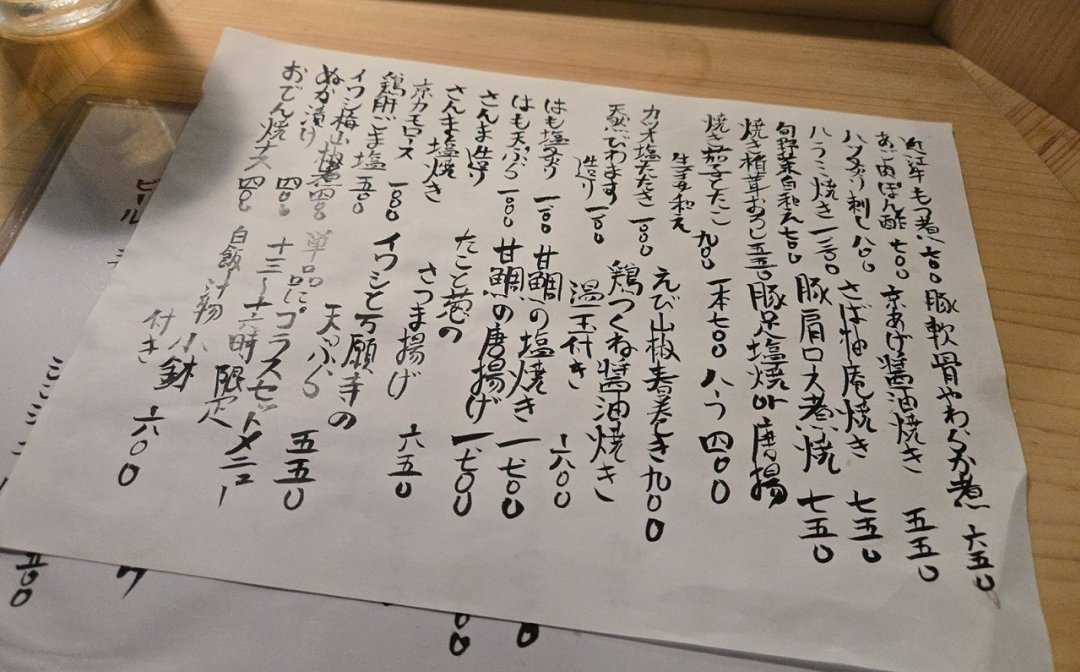 近江牛もつ煮 七〇〇
豚軟骨やわらか煮 六五〇
あじ肉ぽん酢 七〇〇
京あげ醤油焼き 五五〇
ハツ炙り刺し 八〇〇
さば柚庵焼き 七五〇
ハラミ焼き 一三〇〇
豚肩ロース煮焼 七五〇
旬野菜白和え 七〇〇
焼き椎茸おろし 五五〇
豚足塩焼 or 唐揚
一本 七〇〇 ハーフ 四〇〇
焼き茄子とたこ
生姜和え 九〇〇
えび山椒春巻き 九〇〇
カツオ塩たたき 一〇〇〇
鶏つくね醤油焼き
温玉付き 六〇〇
天然ひわます
造り 一一〇〇
はも塩炙り 一一〇〇
甘鯛の塩焼き 一七〇〇
はも天ぷら 一〇〇〇
甘鯛の唐揚げ 一七〇〇
さんま造り
さんま塩焼き
たこと葱の
さつま揚げ 六五〇
京カモロース 一一〇〇
鶏肝ごま塩 五〇〇
イワシと万願寺の
天ぷら 五五〇
イワシ梅山椒煮 四〇〇
ぬか漬け 四〇〇
おでん焼ナス 四〇〇
単品にプラスセットメニュー
十三〜十六時限定
白飯 汁物 小鉢
付き 六〇〇
ビール
五〇〇